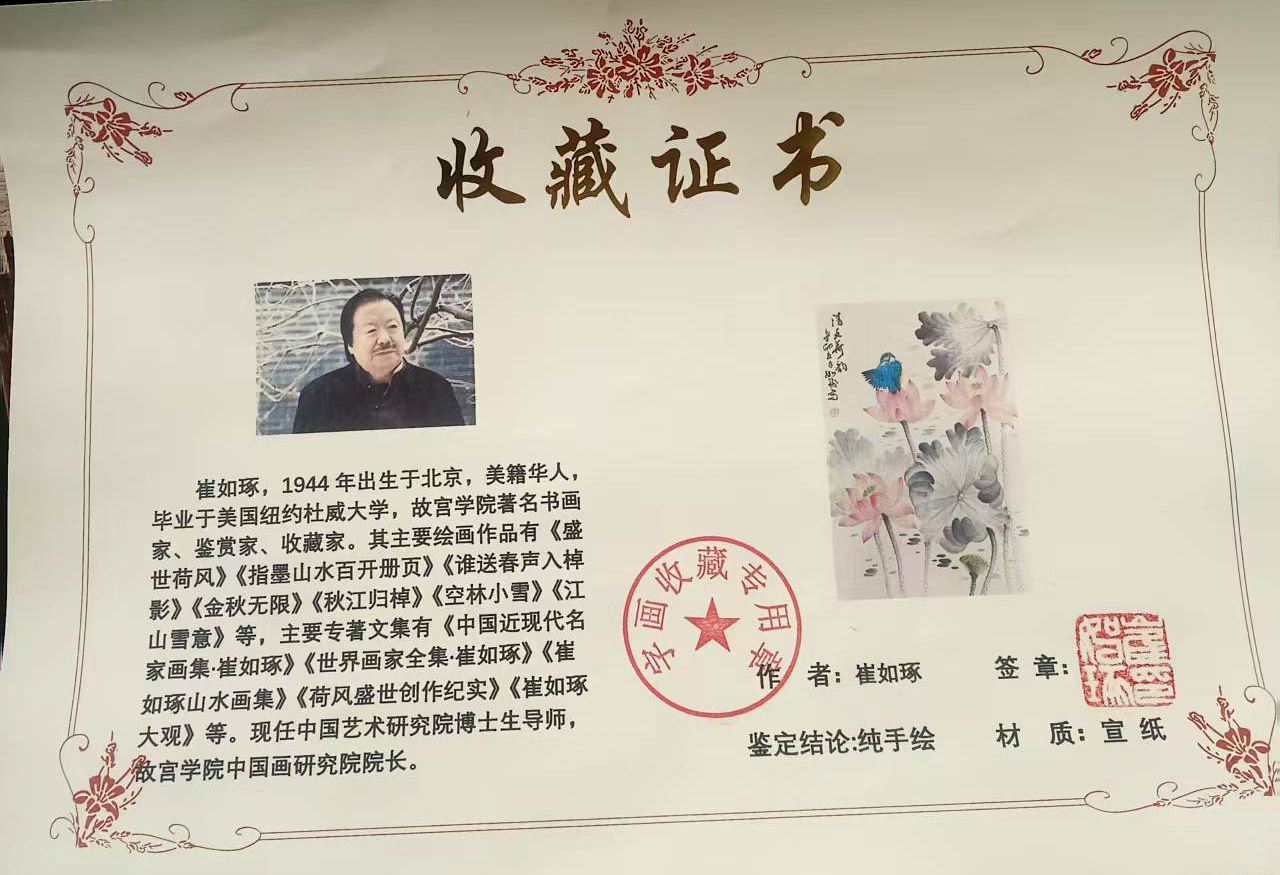 收藏证书
崔如琢，1944年出生于北京，美籍华人，
毕业于美国纽约杜威大学，故宫学院著名书画
家、鉴赏家、收藏家。其主要绘画作品有《盛
世荷风》《指墨山水百开册页》《谁送春声入棹
影》《金秋无限》《秋江归棹》《空林小雪》《江
山雪意》等，主要专著文集有《中国近现代名
家画集·崔如琢》《世界画家全集·崔如琢》《崔
如琢山水画集》《荷风盛世创作纪实》《崔如琢
大观》等。现任中国艺术研究院博士生导师，
故宫学院中国画研究院院长。
字画收藏专用章
作 者：崔如琢
签 章：
鉴定结论:纯手绘
材 质：宣 纸